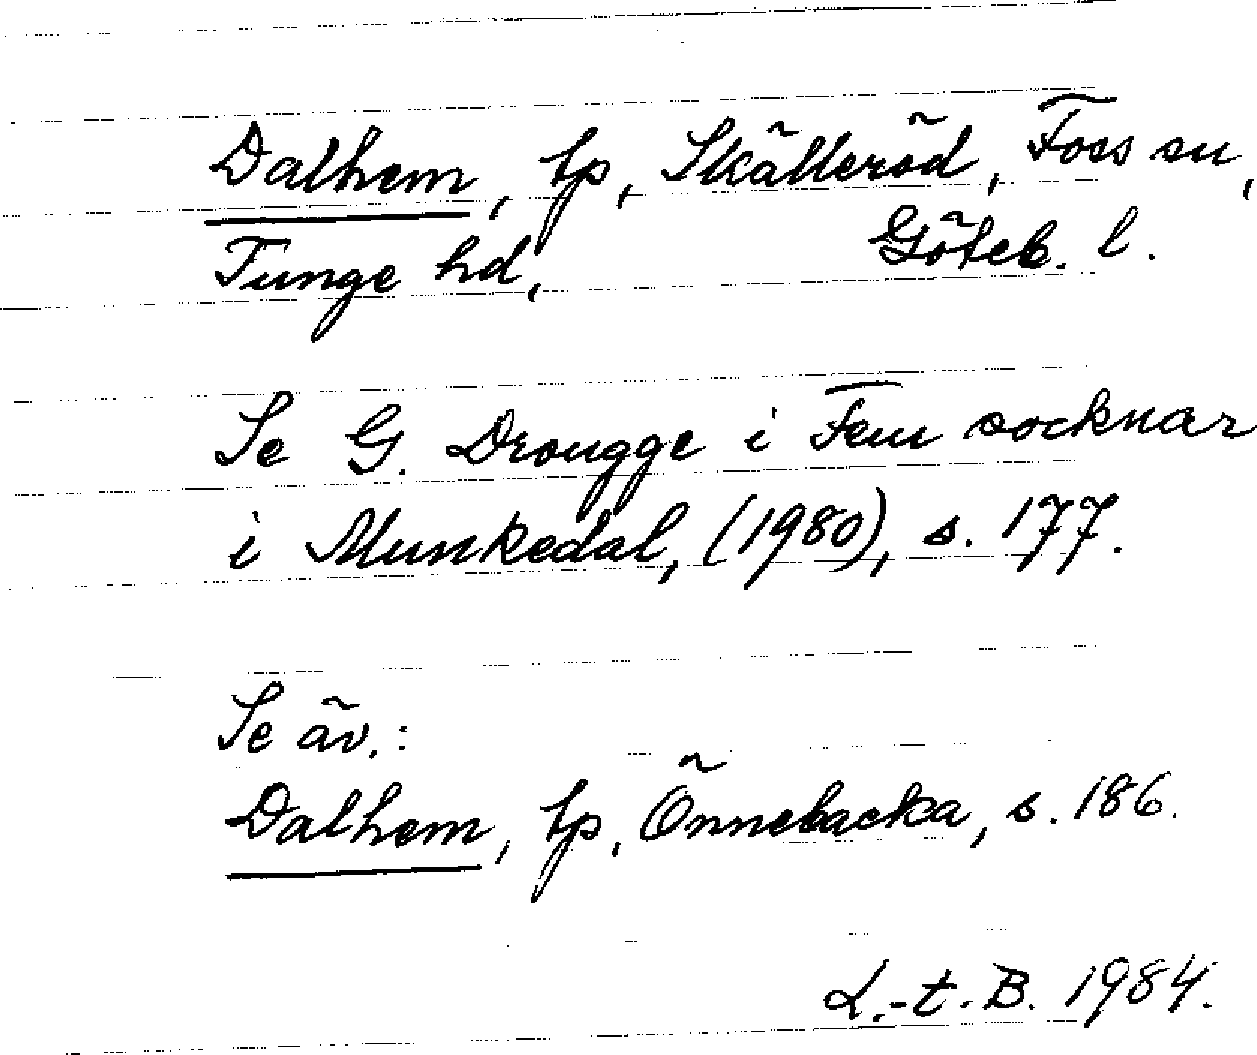 Dalhem, tp, Skälleröd, Foss sn,
Tunge hd, Göteb. l.
Se G. Drougge i Fem socknar
i Munkedal, (1980), s. 177.
Se äv.:
Dalhem, tp, Önnebacka, s. 186.
L.-t. B. 1984.